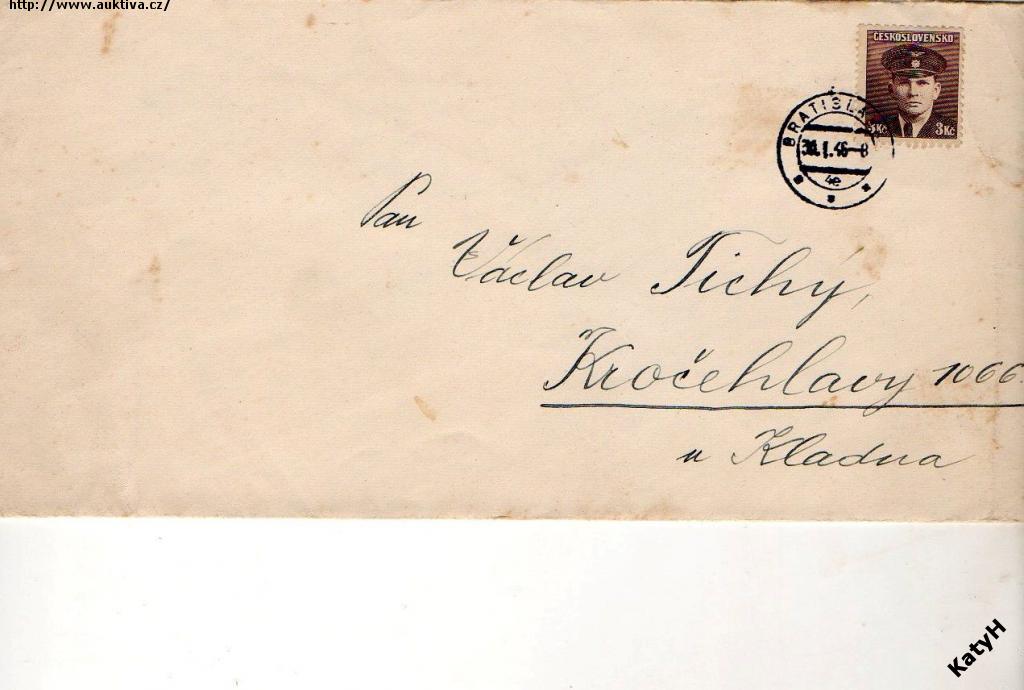 http://www.auktiva.cz/
ČESKOSLOVENSKO
3Kč 3Kč
BRATISLA
30.I.46-8
4e
Pan
Václav Tichý,
Kročehlavy 1066
u Kladna
KatyH